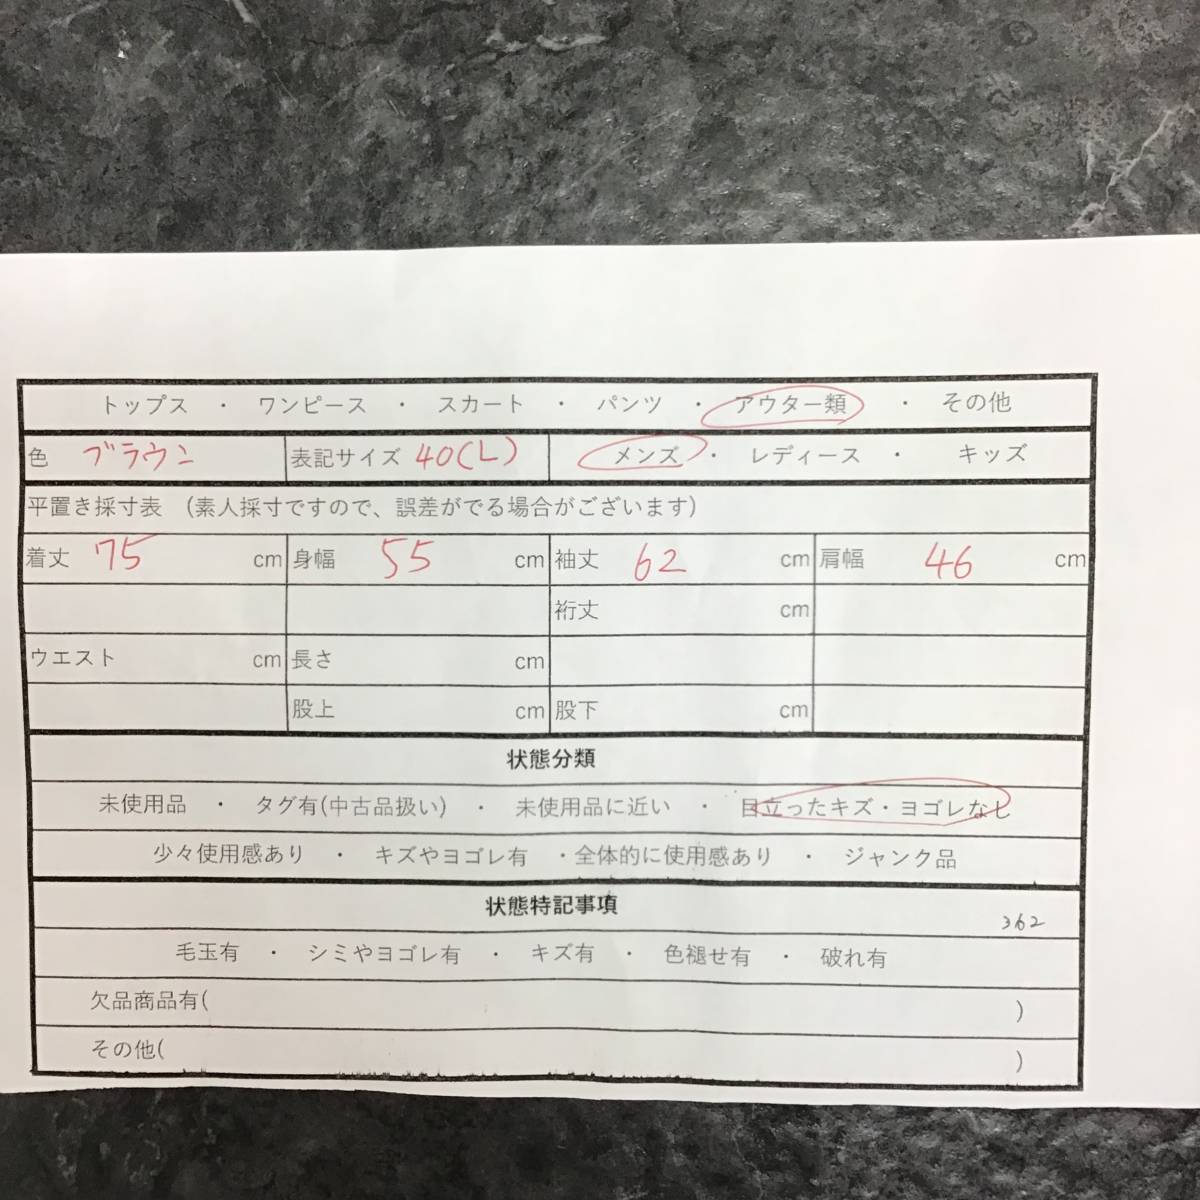 トップス ・ ワンピース ・ スカート ・ パンツ ・ アウター類 ・ その他
色 ブラウン 表記サイズ 40(L) メンズ ・ レディース ・ キッズ
平置き採寸表 (素人採寸ですので、誤差がでる場合がございます)
着丈 75 cm 身幅 55 cm 袖丈 62 cm 肩幅 46 cm
裄丈 cm
ウエスト cm 長さ cm
股上 cm 股下 cm
状態分類
未使用品 ・ タグ有(中古品扱い) ・ 未使用品に近い ・ 目立ったキズ・ヨゴレなし
少々使用感あり ・ キズやヨゴレ有 ・全体的に使用感あり ・ ジャンク品
状態特記事項
362
毛玉有 ・ シミやヨゴレ有 ・ キズ有 ・ 色褪せ有 ・ 破れ有
欠品商品有( )
その他( )